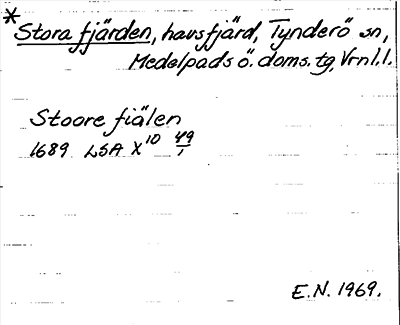 * Stora fjärden, havsfjärd, Tynderö sn,
Medelpads ö. doms. tg, Vrnl.l.
Stoore fiälen
1689 LSA X¹⁰ 49/1
E.N. 1969.